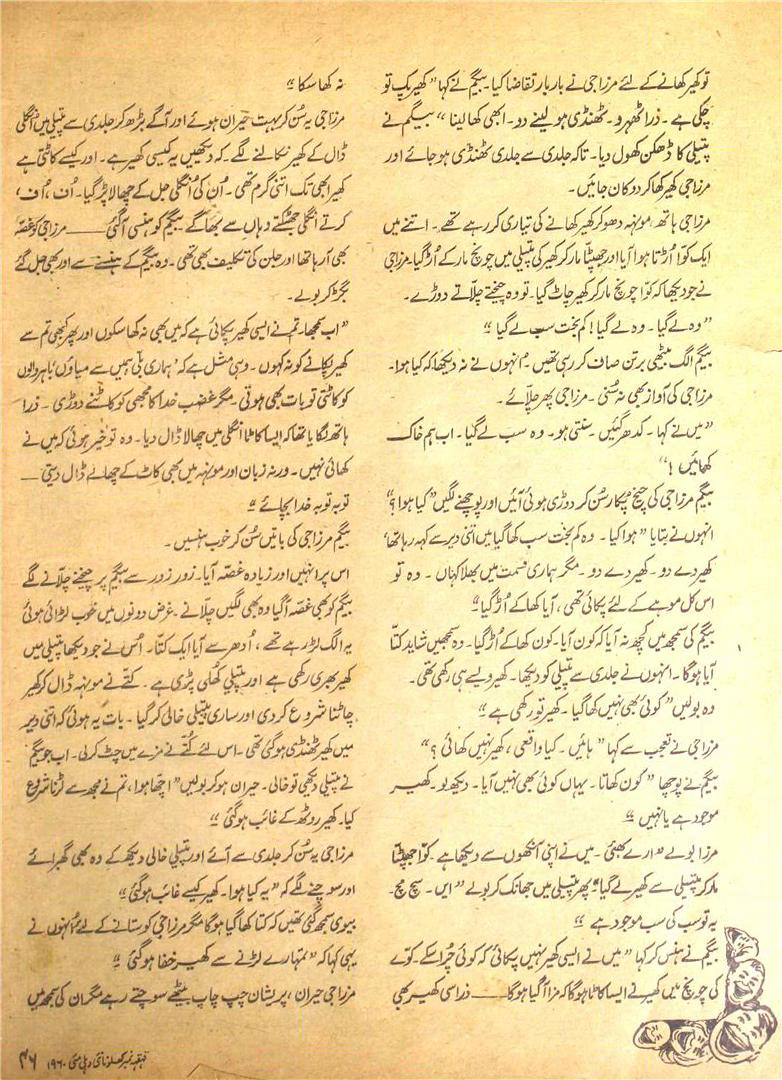 تو کھیر کھانے کے لئے مرزا جی نے بار بار تقاضا کیا۔ بیگم نے کہا ”کھیر پک تو
چکی ہے۔ ذرا ٹھہرو۔ ٹھنڈی ہو لینے دو۔ ابھی کھا لینا“ بیگم نے
پتیلی کا ڈھکن کھول دیا۔ تاکہ جلدی سے جلدی ٹھنڈی ہو جائے اور
مرزا جی کھیر کھا کر دوکان جائیں۔
مرزا جی ہاتھ، مونہہ دھو کر کھیر کھانے کی تیاری کر رہے تھے۔ اتنے میں
ایک کوّا اُڑتا ہوا آیا اور جھپٹّا مار کر کھیر کی پتیلی میں چونچ مار کے اُڑ گیا۔ مرزا جی
نے جو دیکھا کہ کوّا چونچ مار کر کھیر چاٹ گیا۔ تو وہ چیختے چلّاتے دوڑے۔
”وہ لے گیا۔ وہ لے گیا! کم بخت سب لے گیا“
بیگم الگ بیٹھی برتن صاف کر رہی تھیں۔ اُنہوں نے نہ دیکھا کہ کیا ہوا۔
مرزا جی کی آواز بھی نہ سُنی۔ مرزا جی پھر چلّائے۔
”میں نے کہا۔ کدھر گئیں۔ سنتی ہو۔ وہ سب لے گیا۔ اب ہم خاک
کھائیں!“
بیگم مرزا جی کی چیخ پکار سُن کر دوڑی ہوئی آئیں اور پوچھنے لگیں ”کیا ہوا؟“
انہوں نے بتایا ”ہوا کیا۔ وہ کم بخت سب کھا گیا میں اتنی دیر سے کہہ رہا تھا‘
کھیر دے دو۔ کھیر دے دو۔ مگر ہماری قسمت میں بھلا کہاں۔ وہ تو
اس کل موہے کے لئے پکائی تھی، آیا کھا کے اُڑ گیا“
بیگم کی سمجھ میں کچھ نہ آیا کہ کون آیا۔ کون کھا کے اُڑ گیا۔ وہ سمجھیں شاید کتّا
آیا ہوگا۔ انہوں نے جلدی سے پتیلی کو دیکھا۔ کھیر ویسے ہی رکھی تھی۔
وہ بولیں ”کوئی بھی نہیں کھا گیا۔ کھیر تو رکھی ہے“
مرزا جی نے تعجب سے کہا ”ہائیں۔ کیا واقعی، کھیر نہیں کھائی؟“
بیگم نے پوچھا ”کون کھاتا۔ یہاں کوئی بھی نہیں آیا۔ دیکھ لو۔ کھیر
موجود ہے یا نہیں“
مرزا بولے ”ارے بھئی۔ میں نے اپنی آنکھوں سے دیکھا ہے۔ کوّا جھپٹّا
مار کر پتیلی سے کھیر لے گیا“ پھر پتیلی میں جھانک کر بولے ”ایں۔ سچ مچ۔
یہ تو سب کی سب موجود ہے“
بیگم نے ہنس کر کہا ”میں نے ایسی کھیر نہیں پکائی کہ کوئی چُرا سکے۔ کوّے
کی چونچ میں کھیر نے ایسا کاٹا ہوگا کہ مزا آ گیا ہوگا۔ ذرا سی کھیر بھی
نہ کھا سکا“
مرزا جی یہ سُن کر بہت حیران ہوئے اور آگے بڑھ کر جلدی سے پتیلی میں اُنگلی
ڈال کے کھیر نکالنے لگے۔ کہ دیکھیں یہ کیسی کھیر ہے۔ اور کیسے کاٹتی ہے
کھیر ابھی تک اتنی گرم تھی۔ اُن کی اُنگلی جل کے چھالا پڑ گیا۔ اُف، اُف،
کرتے انگلی جھٹکتے وہاں سے بھاگے بیگم کو ہنسی آ گئی۔ مرزا جی کو غصّہ
بھی آ رہا تھا اور جلن کی تکلیف بھی تھی۔ وہ بیگم کے ہنسنے سے اور بھی جل گئے
بگڑ کر بولے۔
”اب سمجھا۔ تم نے ایسی کھیر پکائی ہے کہ میں بھی نہ کھا سکوں اور پھر کبھی تم سے
کھیر پکانے کو نہ کہوں۔ وہی مثل ہے کہ ’ہماری بلّی ہمیں سے میاؤں‘ باہر والوں
کو کاٹتی تو بات بھی ہوتی۔ مگر غضب خدا کا مجھی کو کاٹنے دوڑی۔ ذرا
ہاتھ لگایا تھا کہ ایسا کاٹا انگلی میں چھالا ڈال دیا۔ وہ تو خیر ہوئی کہ میں نے
کھائی نہیں۔ ورنہ زبان اور مونہہ میں بھی کاٹ کے چھالے ڈال دیتی۔
توبہ توبہ خدا بچائے“
بیگم مرزا جی کی باتیں سُن کر خوب ہنسیں۔
اس پر انہیں اور زیادہ غصّہ آیا۔ زور زور سے بیگم پر چیخنے چلّانے لگے
بیگم کو بھی غصّہ آ گیا وہ بھی لگیں چلّانے۔ غرض دونوں میں خوب لڑائی ہوئی
یہ الگ لڑ رہے تھے، اُدھر سے آیا ایک کتّا۔ اُس نے جو دیکھا پتیلی میں
کھیر بھری رکھی ہے اور پتیلی کھُلی پڑی ہے۔ کتّے نے مونہہ ڈال کر کھیر
چاٹنا شروع کر دی اور ساری پتیلی خالی کر گیا۔ بات یہ ہوئی کہ اتنی دیر
میں کھیر ٹھنڈی ہو گئی تھی۔ اس لئے کُتّے نے مزے میں چٹ کر لی۔ اب جو بیگم
نے پتیلی دیکھی تو خالی۔ حیران ہو کر بولیں ”اچّھا ہوا، تم نے مجھ سے لڑنا شروع
کیا۔ کھیر روٹھ کے غائب ہو گئی“
مرزا جی یہ سُن کر جلدی سے آئے اور پتیلی خالی دیکھ کے وہ بھی گھبرائے
اور سوچنے لگے کہ ”یہ کیا ہوا۔ کھیر کیسے غائب ہو گئی“
بیوی سمجھ گئی تھیں کہ کتّا کھا گیا ہوگا مگر مرزا جی کو ستانے کے لئے اُنہوں نے
یہی کہا کہ ”تمہارے لڑنے سے کھیر خفا ہو گئی“
مرزا جی حیران، پریشان چپ چاپ بیٹھے سوچتے رہے مگر ان کی سمجھ میں
قہقہہ نمبر کھلونا نئی دہلی مئی ۱۹۶۰
۴۶